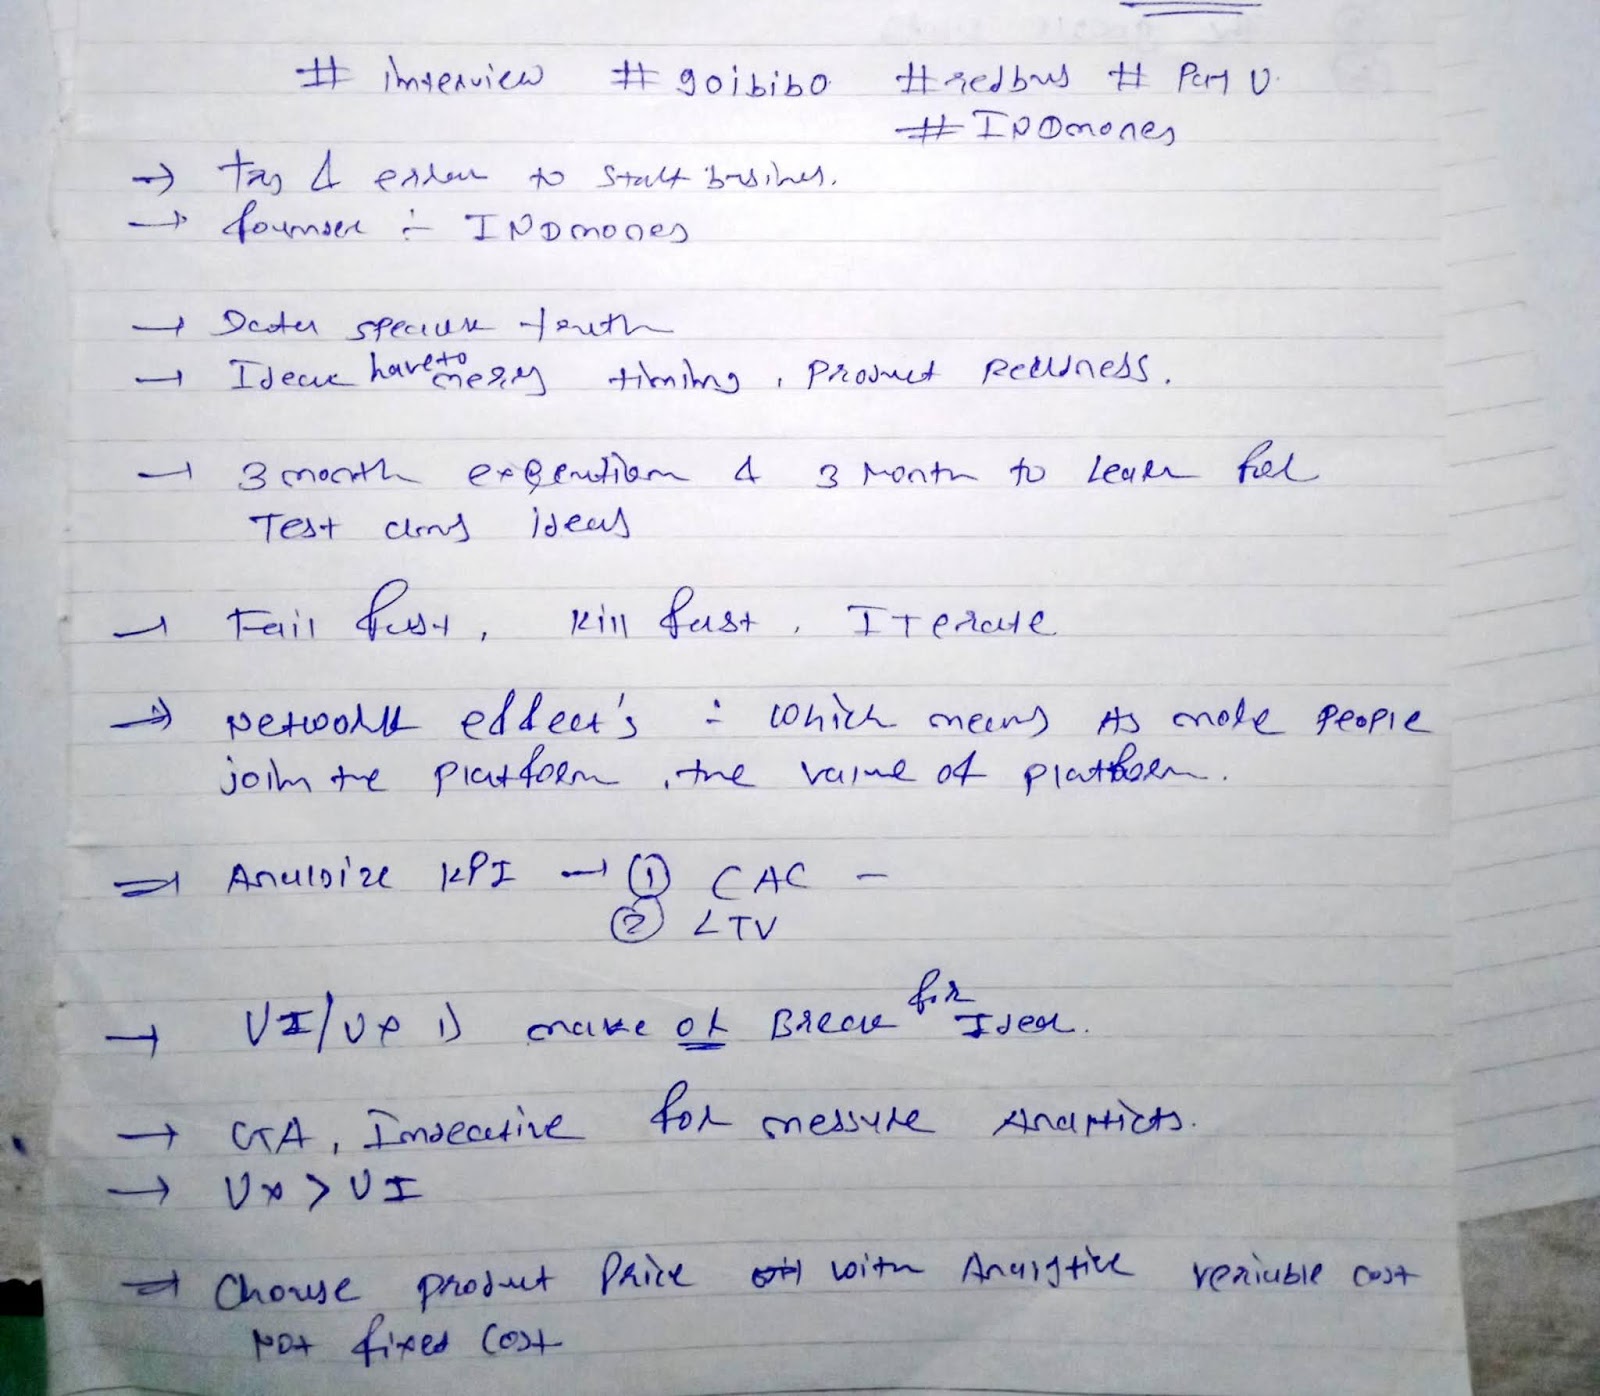 # interview # goibibo # redbus # Pay U.
# INDmoney
→ Try & error to start business.
→ founder :- INDmoney
→ Data speak truth
→ Idea have to merry timing, product readness.
→ 3 month execution & 3 month to learn for
Test any ideas
→ Fail fast, Kill fast, ITerate
→ Network effect's :- which means As more people
join the platform, the value of platform.
⇒ Analsize KPI → ① CAC -
② LTV
→ UI/UX is make or Break for Idea.
→ GA, for messure
→ UX > UI
⇒ Chouse product Price with variable cost
Not fixed cost